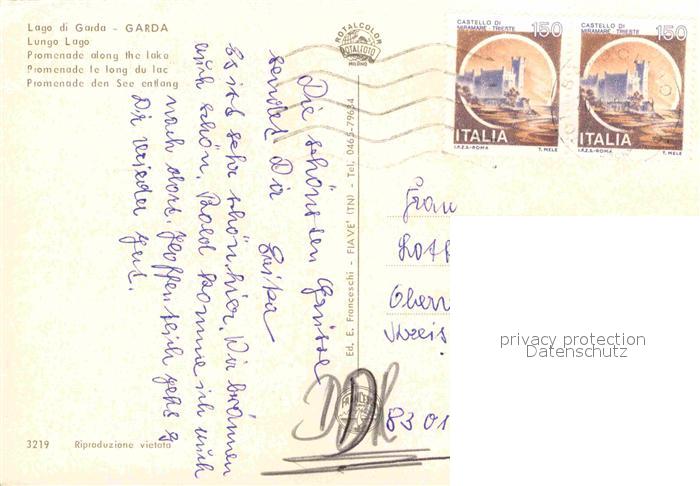 Lago di Garda - GARDA
Lungo Lago
Promenade along the lake
Promenade le long du lac
Promenade den See entlang
ROTALCOLOR
ROTALFOTO
MILANO
CASTELLO DI
MIRAMARE - TRIESTE
150
ITALIA
I.P.Z.S.-ROMA
T. MELE
CASTELLO DI
MIRAMARE - TRIESTE
150
ITALIA
I.P.Z.S.-ROMA
T. MELE
Die schönsten Grüsse
sendet Dir Erika
Es ist sehr schön hier. Wir bräunen
uns schön. Bald komme ich auch
nach dort. Hoffentlich gehts
Dir wieder gut.
Ed. E. Franceschi - FIAVÈ (TN) - Tel. 0465-79624
Frau
Loth
Kreis
8301
DDR
privacy protection
Datenschutz
3219 Riproduzione vietata